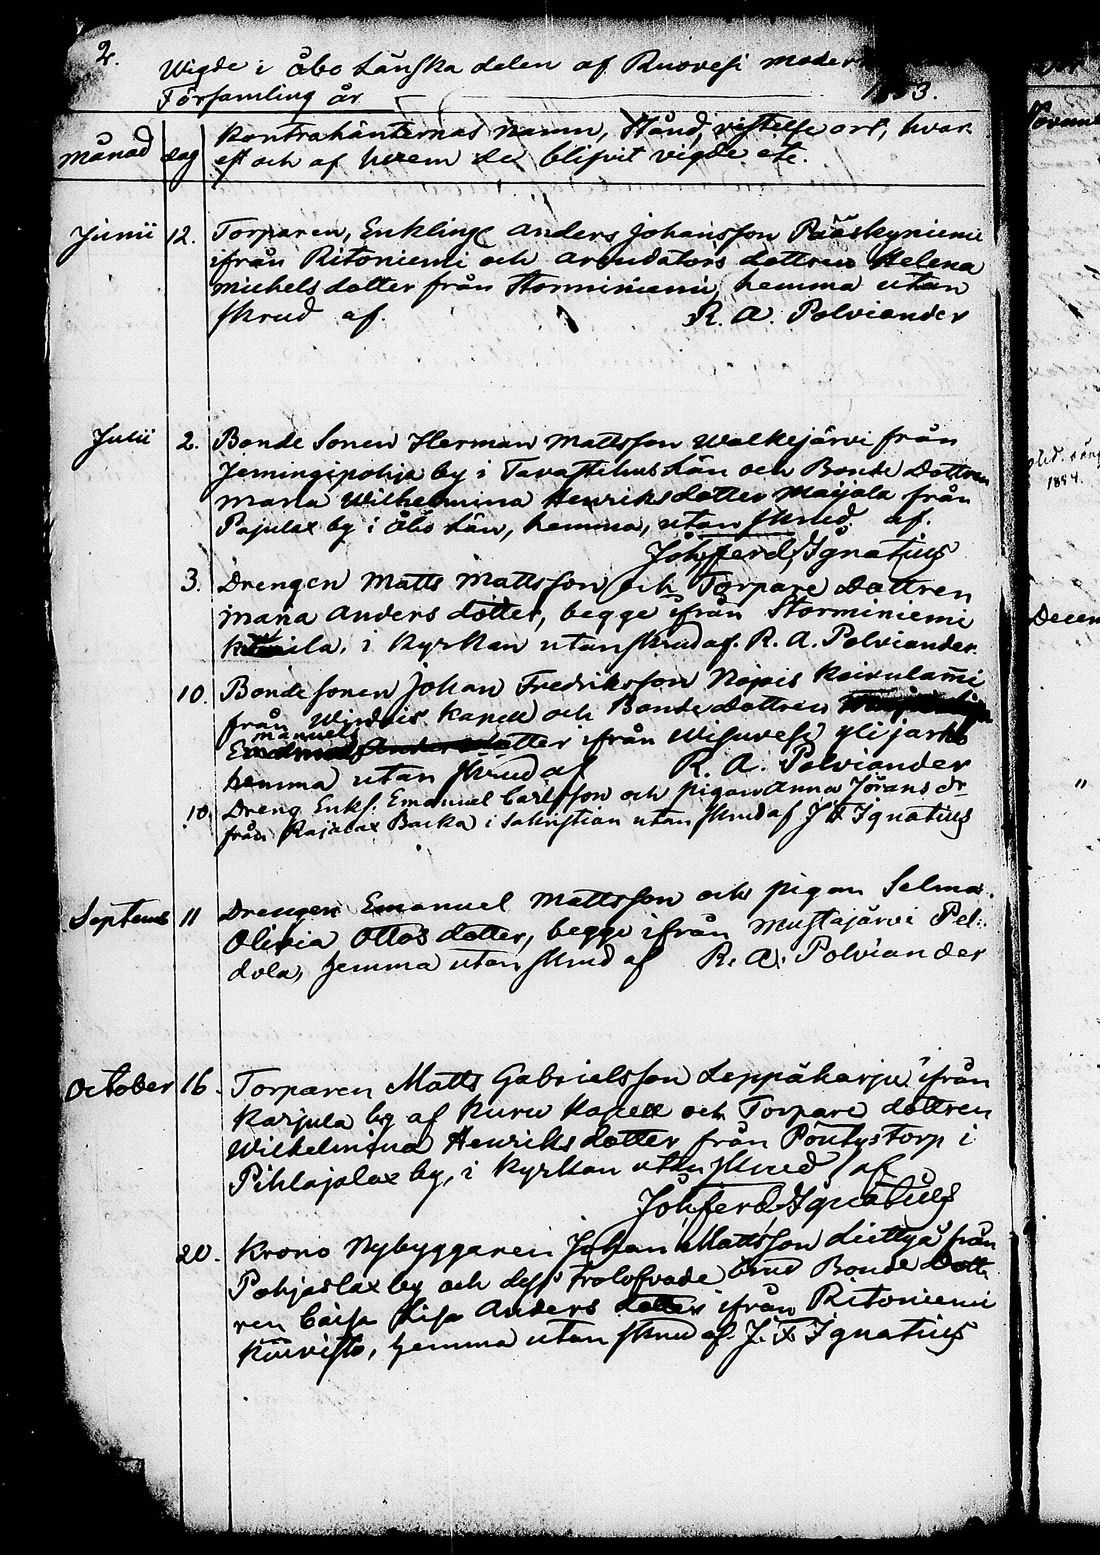 2.
Wigde i Åbo Länska delen af Ruovesi moder
Församling år 1853.
månad dag Kontrahänternas namn, Stånd, vistelse ort, hvar
est och af hvem de blifvit vigde etc.
Junii 12. Torparen, Enklinge Anders Johansson Pääskyniemi
ifrån Ritoniemi och arendators dottren Helena
Michels dotter från Storminiemi, hemma utan
skrud af R. A. Polviander
Julii 2. Bonde Sonen Herman Mattsson Walkejärvi från
Jemingipohja by i Tavastehus Län och Bonde Dottren
Maria Wilhelmina Henriksdotter Maijala från
Pajulax by i Åbo Län, hemma, utan skrud af.
Joh, ferd, Ignatius
3. Drengen Matts Mattsson och Torpare Dottren
Maria Anders dotter, begge ifrån Storminiemi
i Kyrkan utan skrud af. R. A. Polviander.
10. Bonde sonen Johan Fredriksson Nojais Koivulami
från Wirdois Kapell och Bonde dottren
manuels
dotter ifrån Wisuvesi Ylijarho
hemma utan skrud af R. A. Polviander
10. Dreng Enkl. Emanuel Carlsson och pigan Anna Jörans dr
från Rajalax Backa i Sakristian utan skrud af J F Ignatius
Septemb 11 Drengen Emanuel Mattsson och pigan Selma
Olivia Ottos dotter, begge ifrån Mustajärvi Pel:
dola, hemma utan skrud af R. A. Polviander
October 16. Torparen Matts Gabrielsson Leppäharju ifrån
Karjula by af Kuru Kapell och Torpare dottren
Wilhelmina Henriks dotter från Pöntystorp i
Pihlajalax by, i Kyrkan utan skrud af
Joh, ferd, Ignatius
20. Krono Nybyggaren Johan Mattsson Liettyä från
Pohjaslax by och dess trolofvade brud Bonde Dott
ren Caisa Lisa Anders dotter ifrån Ritoniemi
Kuivisto, hemma utan skrud af. J. F Ignatius
1854.
Decem
"